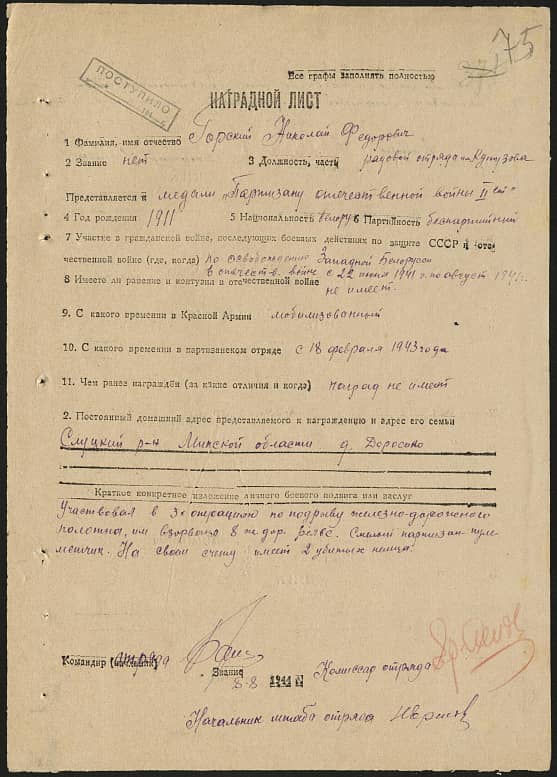 75
Все графы заполнять полностью
ПОСТУПИЛО
НАГРАДНОЙ ЛИСТ
1 Фамилия, имя отчество Горский Николай Федорович
2 Звание нет 3 Должность, часть рядовой отряда им Кутузова
Представляется к медали "Партизану отечественной войны II ст"
4 Год рождения 1911 5 Национальность белорус 6 Партийность беспартийный
7 Участие в гражданской войне, последующих боевых действиях по защите СССР и оте
чественной войне (где, когда) по освобождению Западной Белорусси
в отечеств. войне с 22 июня 1941 г. по август 1941г.
8 Имеете ли ранение и контузии в отечественной войне
не имеет.
9. С какого времени в Красной Армии мобилизованный
10. С какого времени в партизанском отряде с 18 февраля 1943 года
11. Чем ранее награждён (за какие отличия и когда) наград не имеет
2. Постоянный домашний адрес представляемого к награждению и адрес его семьи
Слуцкий р-н Минской области д.
Краткое конкретное изложение личного боевого подвига или заслуг
Участвовал в 3х операциях по подрыву железно-дорожного
полотна, им взорвано 8 ж. дор. рельс. Смелый партизан-пуле-
метчик. На своем счету имеет 2 убитых немца.
Командир отряда
Звание
8-8 1944 г
Комиссар отряда
Начальник штаба отряда